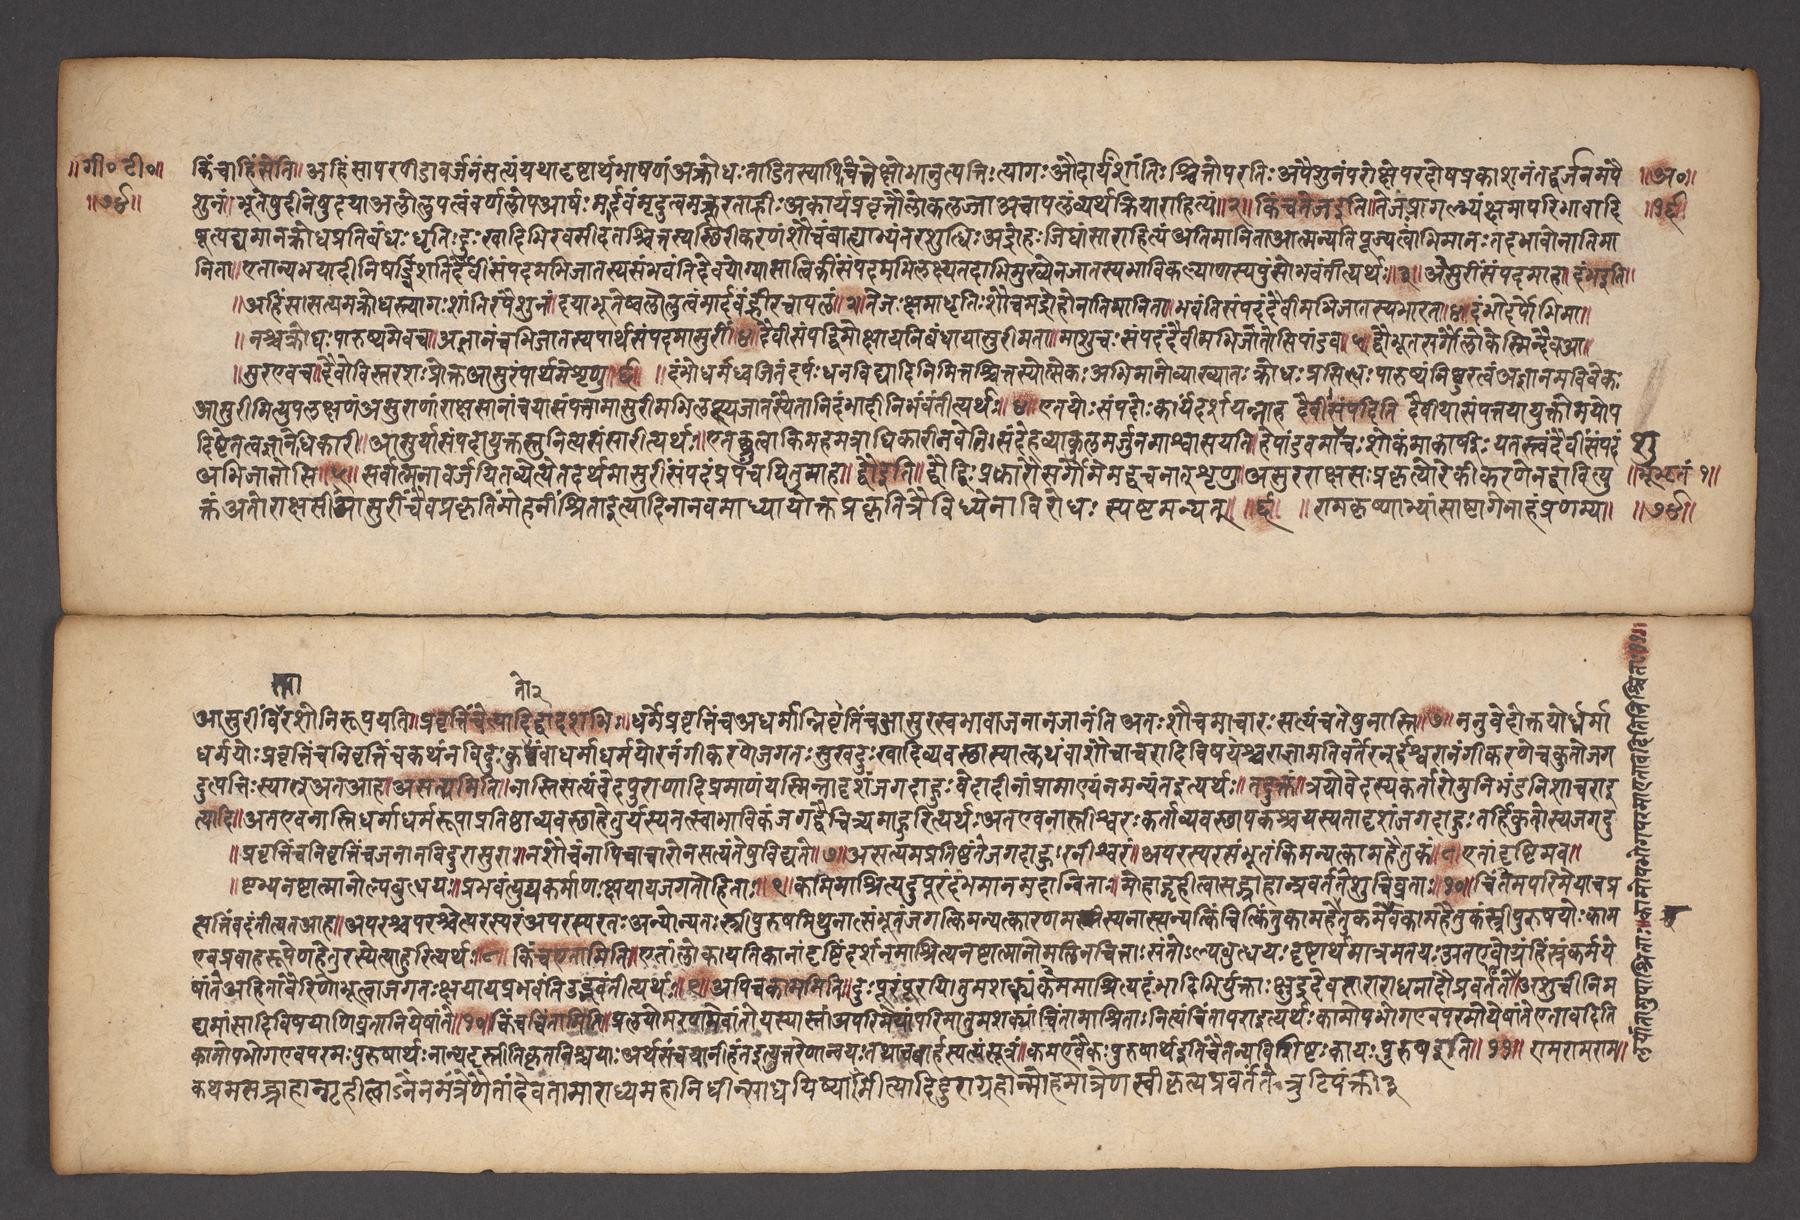 ॥गी०टी०॥
॥७४॥
किंचाहिंसेति॥अहिंसापरपीडावर्जनंसत्यंयथादृष्टार्थभाषणंअक्रोधःताडितस्यापिचित्तेक्षोभानुत्पत्तिःत्यागःऔदार्यंशांतिःश्चित्तोपरतिःअपैशुनंपरोक्षेपरदोषप्रकाशनंतद्वर्जनमपै
शुनं॥भूतेषुदीनेषुदयाअलोलुपत्वंवर्णलोपआर्षःमार्द्दवंमृदुत्वमक्रूरताह्रीःअकार्यप्रवृत्तौलोकलज्जाअचापलंव्यर्थक्रियाराहित्यं॥२॥किंचतेजइति॥तेजःप्रागल्भ्यंक्षमापरिभावादि
षूत्पद्यमानक्रोधप्रतिबंधःधृतिःदुःखादिभिरवसीदतश्चित्तस्यस्थिरीकरणंशौचंबाह्याभ्यंतरशुद्धिःअद्रोहःजिघांसाराहित्यंअतिमानिताआत्मन्यतिपूज्यत्वाभिमानःतदभावोनातिमा
निता॥एतान्यभयादीनिषड्विंशतिर्दैवींसंपदमभिजातस्यसंभवंतिदेवयोग्यांसात्विकींसंपदमभिलक्ष्यतदाभिमुख्येनजातस्यभाविकल्याणस्यपुंसोभवंतीत्यर्थः॥३॥आसुरींसंपदमाह॥दंभइति॥
॥अहिंसासत्यमक्रोधस्त्यागःशांतिरपैशुनं॥दयाभूतेष्वलोलुत्वंमार्दवंह्रीरचापलं॥२॥तेजःक्षमाधृतिःशौचमद्रोहोनातिमानिता॥भवंतिसंपदंदैवीमभिजातस्यभारत॥३॥दंभोदर्पोभिमा॥
॥नश्चक्रोधःपारुष्यमेवच॥अज्ञानंचभिजातस्यपार्थसंपदमासुरीं॥४॥दैवीसंपद्विमोक्षायनिबंधायासुरीमता॥माशुचःसंपदंदैवीमभिजातोसिपांडव॥५॥द्वौभूतसर्गौलोकेस्मिन्दैवआ॥
॥सुरएवच॥दैवोविस्तरशःप्रोक्तआसुरंपार्थमेशृणु॥६॥ ॥दंभोधर्मध्वजितंदर्पःधनविद्यादिनिमित्तश्चित्तस्योत्सेकःअभिमानोव्याख्यातःक्रोधःप्रसिद्धःपारुष्यंनिष्ठुरत्वंअज्ञानमविवेकः
आसुरीमित्युपलक्षणंअसुराणांराक्षसानांचयासंपत्तामासुरीमभिलक्ष्यजातस्यैतानिदंभादीनिभवंतीत्यर्थः॥४॥एतयोःसंपदोःकार्यंदर्शयन्नाह दैवीसंपदिति दैवीयासंपत्तयायुक्तोमयोप
दिष्टेतत्वज्ञानेधिकारी॥आसुर्यासंपदायुक्तस्तुनित्यसंसारीत्यर्थः॥एतच्छ्रुत्वाकिमहमत्राधिकारीनवेति॥संदेहव्याकुलमर्जुनमाश्वासयति॥हेपांडवमाशुचःशोकंमाकार्षीःयतस्त्वंदैवींसंपदं
अभिजातोसि॥५॥सर्वात्मनावर्जयितव्यैत्येतदर्थमासुरींसंपदंप्रपंचयितुमाह॥द्वौइति॥द्वौद्विःप्रकारौसर्गौमेमद्वचनात्शृणु॥असुरराक्षसःप्रकृत्योरेकीकरणेनद्वावित्यु
क्तंअतोराक्षसीमासुरींचैवप्रकृतिंमोहनींश्रिताइत्यादिनानवमाध्यायोक्तप्रकृतित्रैविध्येनाविरोधः स्पष्टमन्यत्॥६॥ ॥रामकृष्णाभ्यांसाष्टांगेनाहंप्रणम्य॥
॥अ०॥
॥१६॥
शु
॥७४॥
तो२
आसुरींविस्तरशोनिरूपयति॥प्रवृत्तिंचेत्यादिद्वादशभिः॥धर्मेप्रवृत्तिंचअधर्मान्निवृत्तिंचआसुरस्वभावाजनानजानंतिअतःशौचमाचारःसत्यंचतेषुनास्ति॥७॥ननुवेदोक्तयोर्धर्मा
धर्मयोःप्रवृत्तिंचनिवृत्तिंचकथंनविदुःकुतोवाधर्माधर्मयोरनंगीकरणेजगतःसुखदुःखादिव्यवस्थास्यात्कथंवाशौचाचारादिविषयेश्वराज्ञामतिवर्तेरन्ईश्वरानंगीकरणेचकुतोजग
दुत्पत्तिःस्यात्अतआह॥असत्यमिति॥नास्तिसत्यंवेदपुराणादिप्रमाणंयस्मिन्तादृशंजगदाहुःवेदादीनांप्रामाण्यंनमन्यंतइत्यर्थः॥तदुक्तं॥त्रयोवेदस्यकर्तारोमुनिभंडनिशाचराइ
त्यादि॥अतएवनास्तिधर्माधर्मरूपाप्रतिष्ठाव्यवस्थाहेतुर्यस्यतत्स्वाभाविकंजगद्वैचित्र्यमाहुरित्यर्थःअतएवनास्तीश्वरःकर्ताव्यवस्थापकश्चयस्यतादृशंजगदाहुःतर्हिकुतोस्यजगदु
॥प्रवृत्तिंचनिवृत्तिंचजनानविदुरासुराः॥नशौचंनापिचाचारोनसत्यंतेषुविद्यते॥७॥असत्यमप्रतिष्ठंतेजगदाहुरनीश्वरं॥अपरस्परसंभूतंकिमन्यत्कामहैतुकं॥८॥एतांदृष्टिमव॥
॥ष्टभ्यनष्टात्मानोल्पबुद्धयः॥प्रभवंत्युग्रकर्माणःक्षयायजगतोहिताः॥९॥काममाश्रित्यदुष्पूरंदंभमानमदान्विताः॥मोहाद्गृहीत्वासद्ग्राहान्प्रवर्ततेशुचिव्रताः॥१०॥चिंतामपरिमेयांचप्र
त्पत्तिंवदंतीत्यतआह॥अपरश्चपरश्चेत्यरस्परंअपरस्परतःअन्योन्यतःस्त्रीपुरुषमिथुनात्संभूतंजगत्किमन्यत्कारणमस्यनास्त्यन्यत्किंचित्किंतुकामहैतुकमेवकामहैतुकंस्त्रीपुरुषयोःकाम
एवप्रवाहरूपेणहेतुरस्येत्याहुरित्यर्थः॥८॥किंचएतामिति॥एतांलोकायतिकानांदृष्टिंदर्शनमाश्रित्यनष्टात्मानोमलिनचित्ताःसंतोऽल्पबुद्धयःदृष्टार्थमात्रमतयःअतएवोग्रंहिंस्रंकर्मये
षांतेअहितावैरिणोभूत्वाजगतःक्षयायप्रभवंतिउद्भवंतीत्यर्थः॥९॥अपिचकाममिति॥दुःपूरंपूरयितुमशक्यंकाममाश्रित्यदंभादिभिर्युक्ताःक्षुद्रदेवताराराधनादौप्रवर्तंते॥अशुचीनिम
द्यमांसादिविषयाणिव्रतानियेषांते॥१०॥किंचचिंतामिति॥प्रलयोमरणमेवांतोयस्यास्तांअपरिमेयांपरिमातुमशक्यांचिंतामाश्रिताःनित्यंचिंतापराइत्यर्थः॥कामोपभोगएवपरमोयेषांतेएतावदिति
कामोपभोगएवपरमःपुरुषार्थःनान्यदस्तीतिकृतनिश्चयाःअर्थसंचयानीहंतइत्युत्तरेणान्वयःतथाचबार्हस्पत्यंसूत्रं॥कामएवैकःपुरुषार्थइतिचैतन्यविशिष्टःकायःपुरुषइति॥११॥रामरामराम॥
कथमसद्ग्राहान्गृहीत्वाऽनेनमंत्रेणैतांदेवतामाराध्यमहानिधीन्साधयिष्यामीत्यादिदुराग्रहान्मोहमात्रेणस्वीकृत्यप्रवर्ततेत्रुटिपंक्ती
लयांतामुपाश्रिताः॥कामोपभोगपरमाएतावदितिनिश्चिताः॥११॥